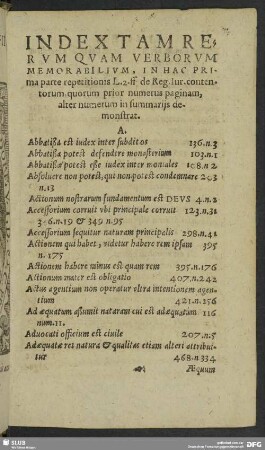 INDEX TAM RE-
RVM QVAM VERBORVM
MEMORABILIVM, IN HAC PRI
ma parte repetitionis L.2.ff de Reg. Iur. conten-
torum. quorum prior numerus paginam,
alter numerum in summarijs de-
monstrat.
A.
Abbatissa est iudex inter subditos 136.n.3
Abbatissa potest defendere monasterium 103.n.1
Abbatissa potest esse iudex inter moniales 108.n.2
Absoluere non potest, qui non potest condemnare 293
n.13
Actionum nostrarum fundamentum est DEVS 4.n.2
Accessorium corruit vbi principale corruit 123.n.31
3-6.n.19 & 349 n.95
Accessorium sequitur naturam principalis 298.n.41
Actionem qui habet, videtur habere rem ipsam 395
n. 175
Actionem habere minus est quam rem 395.n.176
Actionum mater est obligatio 407.n.242
Actus agentium non operatur vltra intentionem agen-
tium 421.n.256
Ad æquatum assumit naturam cui est adæquatum 116
num.11.
Aduocati officium est ciuile 207.n.5
Adæquatæ rei natura & qualitas etiam alteri attribui-
tur 468.n 334
Æquum
SLUB